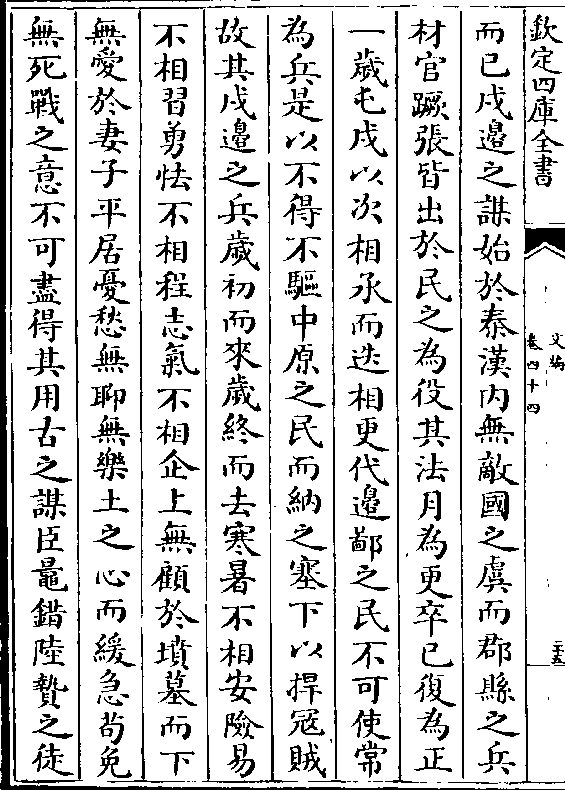 欽定四庫全書
文編
卷四十四
二十五
而已戍邊之謀始於秦漢内無敵國之虞而郡縣之兵
材官蹶張皆出於民之為役其法月為更卒已復為正
一歲屯戍以次相承而迭相更代邊鄙之民不可使常
為兵是以不得不驅中原之民而納之塞下以捍冦賊
故其戍邊之兵歲初而來歲終而去寒暑不相安險易
不相習勇怯不相程志氣不相企上無顧於墳墓而下
無愛於妻子平居憂愁無聊無樂土之心而緩急苟免
無死戰之意不可盡得其用古之謀臣鼂錯陸贄之徒